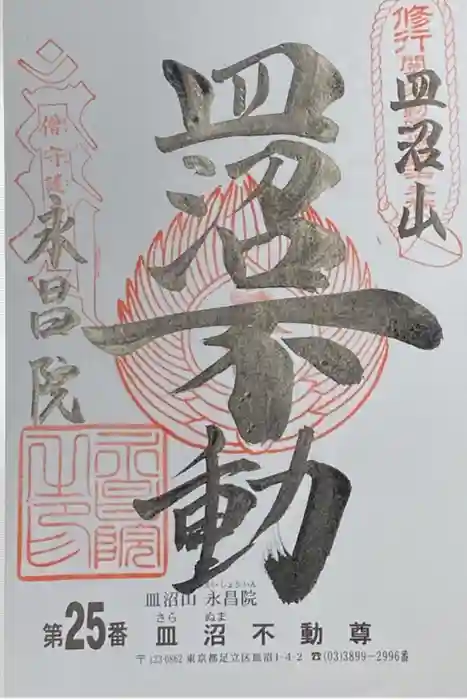 皿沼山
皿沼不動
永昌院
えいしょういん
皿沼山 永昌院
さら ぬま
第25番 皿沼不動尊
〒123-0862 東京都足立区皿沼1-4-2 ☎(03)3899-2996番